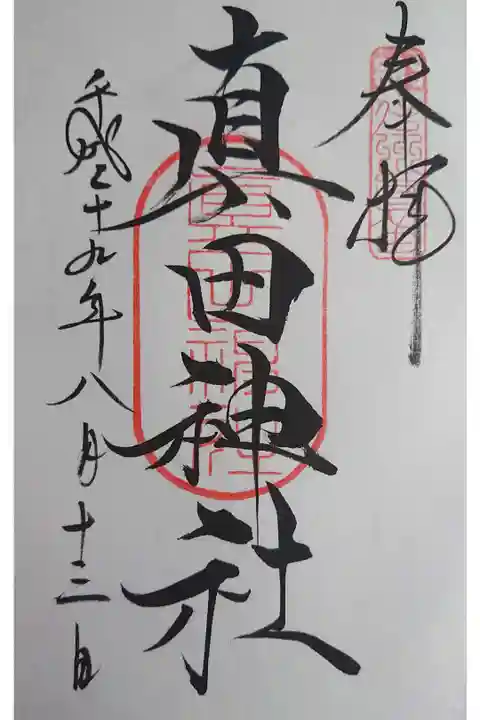 奉拝
眞田神社
平成二十九年八月十三日